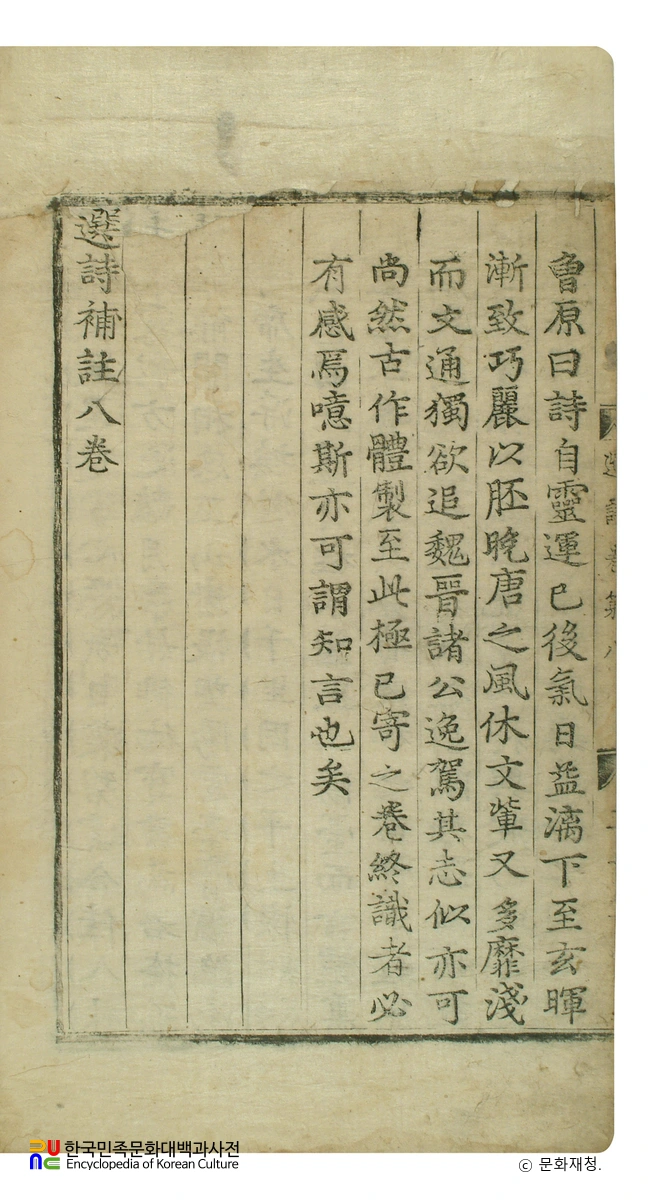 曾原曰詩自靈運已後氣日益漓下至玄暉
漸致巧麗以胚晚唐之風休文輩又多靡淺
而文通獨欲追魏晉諸公逸駕其志似亦可
尚然古作體製至此極已寄之卷終識者必
有感焉噫斯亦可謂知言也矣
選詩補註八卷
한국민족문화대백과사전
Encyclopedia of Korean Culture
ⓒ 문화재청.